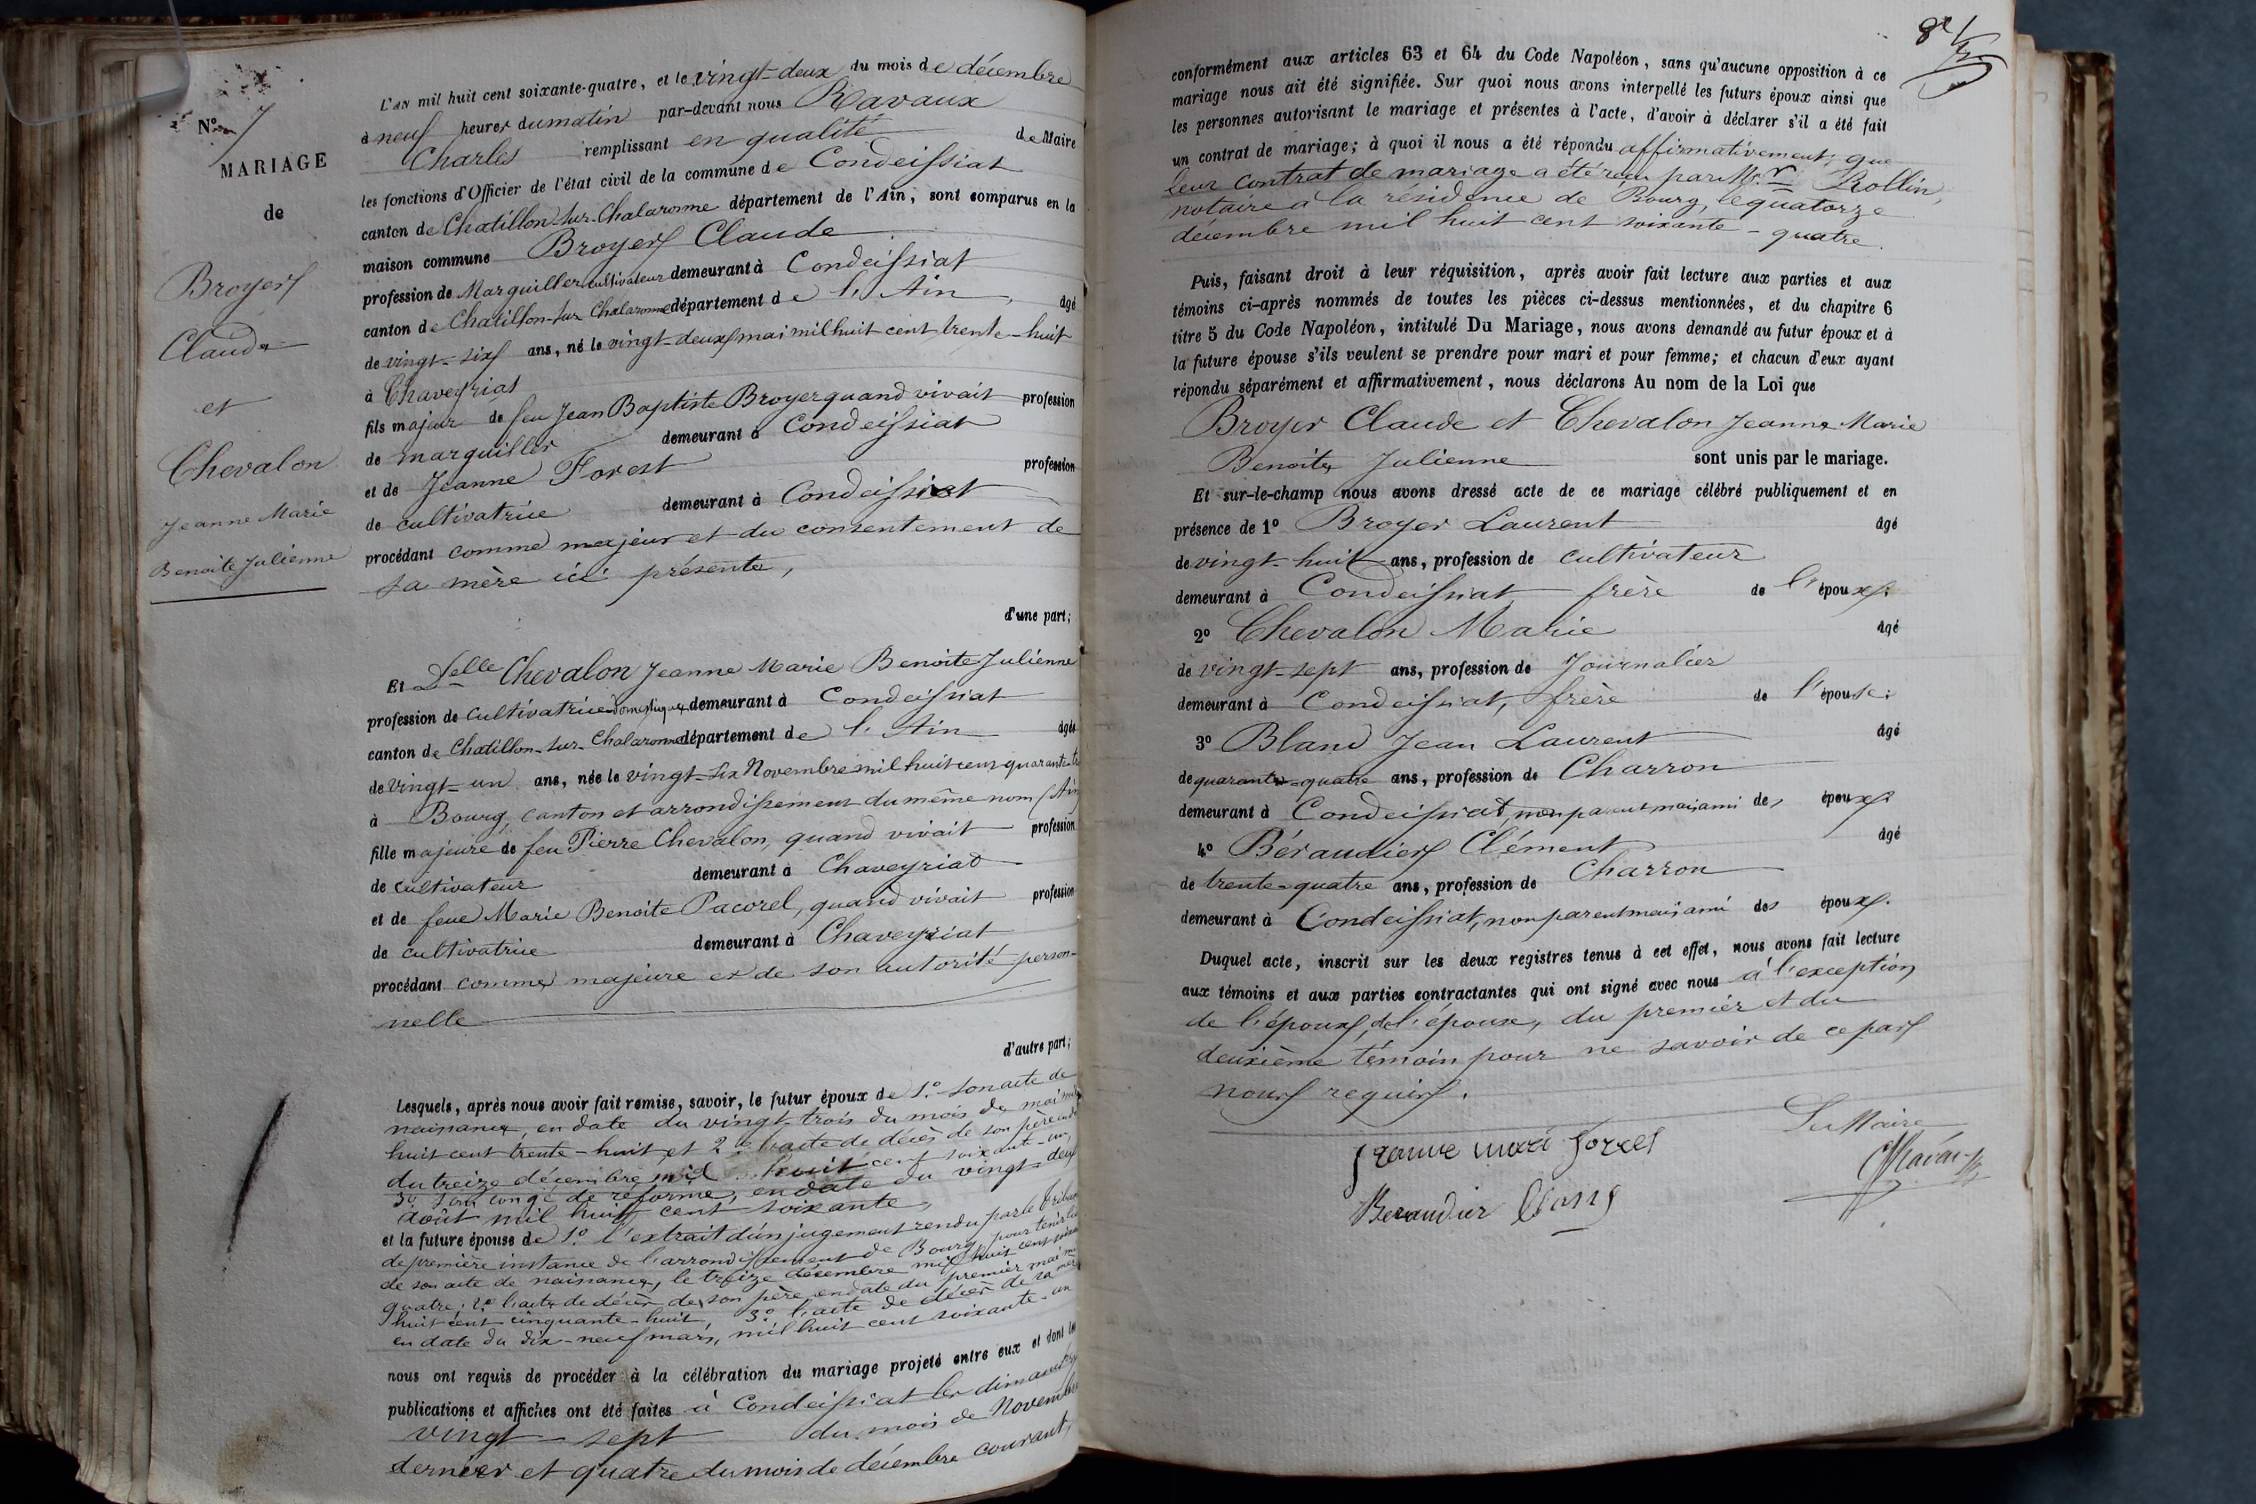 N° 7
MARIAGE
de
Broyer
Claude
et
Chevalon
Jeanne Marie
Benoite Julienne
L'AN mil huit cent soixante-quatre, et le vingt-deux du mois de décembre
à neuf heures du matin par-devant nous Ravaux
Charles remplissant en qualité de Maire
les fonctions d'Officier de l'état civil de la commune de Condeissiat
canton de Chatillon-sur-Chalaronne département de l'Ain, sont comparus en la
maison commune Broyer Claude
profession de Marguiller cultivateur demeurant à Condeissiat
canton de Chatillon-sur Chalaronne département de l'Ain, âgé
de vingt-six ans, né le vingt-deux mai mil huit cent trente-huit
à Chaveyriat
fils majeur de feu Jean Baptiste Broyer quand vivait profession
de marguiller demeurant à Condeissiat
et de Jeanne Forest profession
de cultivatrice demeurant à Condeissiat
procédant comme majeur et du consentement de
sa mère ici présente,
d'une part;
Et Delle Chevalon Jeanne Marie Benoite Julienne
profession de cultivatrice domestique demeurant à Condeissiat
canton de Chatillon-sur-Chalaronne département de l'Ain âgée
de vingt-un ans, née le vingt-six Novembre mil huit cent quarante-t
à Bourg, canton et arrondissement du même nom (Ain
fille majeure de feu Pierre Chevalon, quand vivait profession
de cultivateur demeurant à Chaveyriat
et de feue Marie Benoite Pacorel, quand vivait profession
de cultivatrice demeurant à Chaveyriat
procédant comme majeure et de son autorité person-
nelle
d'autre part;
Lesquels, après nous avoir fait remise, savoir, le futur époux de 1.° son acte de
naissance, en date du vingt-trois du mois de mai mil
huit cent trente-huit et 2.° l'acte de décès de son père en date
du treize décembre mil huit cent soixante-un,
3.° son congé de réforme, en date du vingt-deux
août mil huit cent soixante,
et la future épouse de 1.° l'extrait d'un jugement rendu par le tribunal
de première instance de l'arrondissement de Bourg, pour tenir lieu
de son acte de naissance, le treize décembre mil huit cent soixante
quatre; 2.° l'acte de décès de son père, en date du premier mai mil
huit cent cinquante-huit, 3.° l'acte de décès de sa mère
en date du dix-neuf mars, mil huit cent soixante-un
nous ont requis de procéder à la célébration du mariage projeté entre eux et dont les
publications et affiches ont été faites à Condeissiat les dimanches
vingt-sept du mois de Novembre
dernier et quatre du mois de décembre courant,
conformément aux articles 63 et 64 du Code Napoléon, sans qu'aucune opposition à ce
mariage nous ait été signifiée. Sur quoi nous avons interpellé les futurs époux ainsi que
les personnes autorisant le mariage et présentes à l'acte, d'avoir à déclarer s'il a été fait
un contrat de mariage; à quoi il nous a été répondu affirmativement; que
leur contrat de mariage a été reçu par Mr. Rollin,
notaire à la résidence de Bourg, le quatorze
décembre mil huit cent soixante-quatre.
Puis, faisant droit à leur réquisition, après avoir fait lecture aux parties et aux
témoins ci-après nommés de toutes les pièces ci-dessus mentionnées, et du chapitre 6
titre 5 du Code Napoléon, intitulé Du Mariage, nous avons demandé au futur époux et à
la future épouse s'ils veulent se prendre pour mari et pour femme; et chacun d'eux ayant
répondu séparément et affirmativement, nous déclarons Au nom de la Loi que
Broyer Claude et Chevalon Jeanne Marie
Benoite Julienne sont unis par le mariage.
Et sur-le-champ nous avons dressé acte de ce mariage célébré publiquement et en
présence de 1° Broyer Laurent âgé
de vingt-huit ans, profession de cultivateur
demeurant à Condeissiat frère de l'époux;
2° Chevalon Marie âgé
de vingt-sept ans, profession de Journalier
demeurant à Condeissiat, frère de l'épouse;
3° Bland Jean Laurent âgé
de quarante-quatre ans, profession de Charron
demeurant à Condeissiat, non parent mais ami des époux
4° Béraudier Clément âgé
de trente-quatre ans, profession de Charron
demeurant à Condeissiat, non parent mais ami des époux.
Duquel acte, inscrit sur les deux registres tenus à cet effet, nous avons fait lecture
aux témoins et aux parties contractantes qui ont signé avec nous à l'exception
de l'époux, de l'épouse, du premier et du
deuxième témoin pour ne savoir de ce par
nous requis.
Le Maire
Beraudier